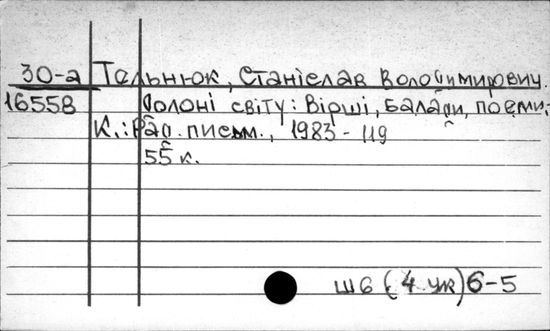 30-а Тельнюк, Станіслав Володимирович.
16558 Долоні світу: Вірші, балади, поеми.
К.: Рад. письм., 1983 - 119
с
55 к.
Ш6 (4 Ук) 6-5